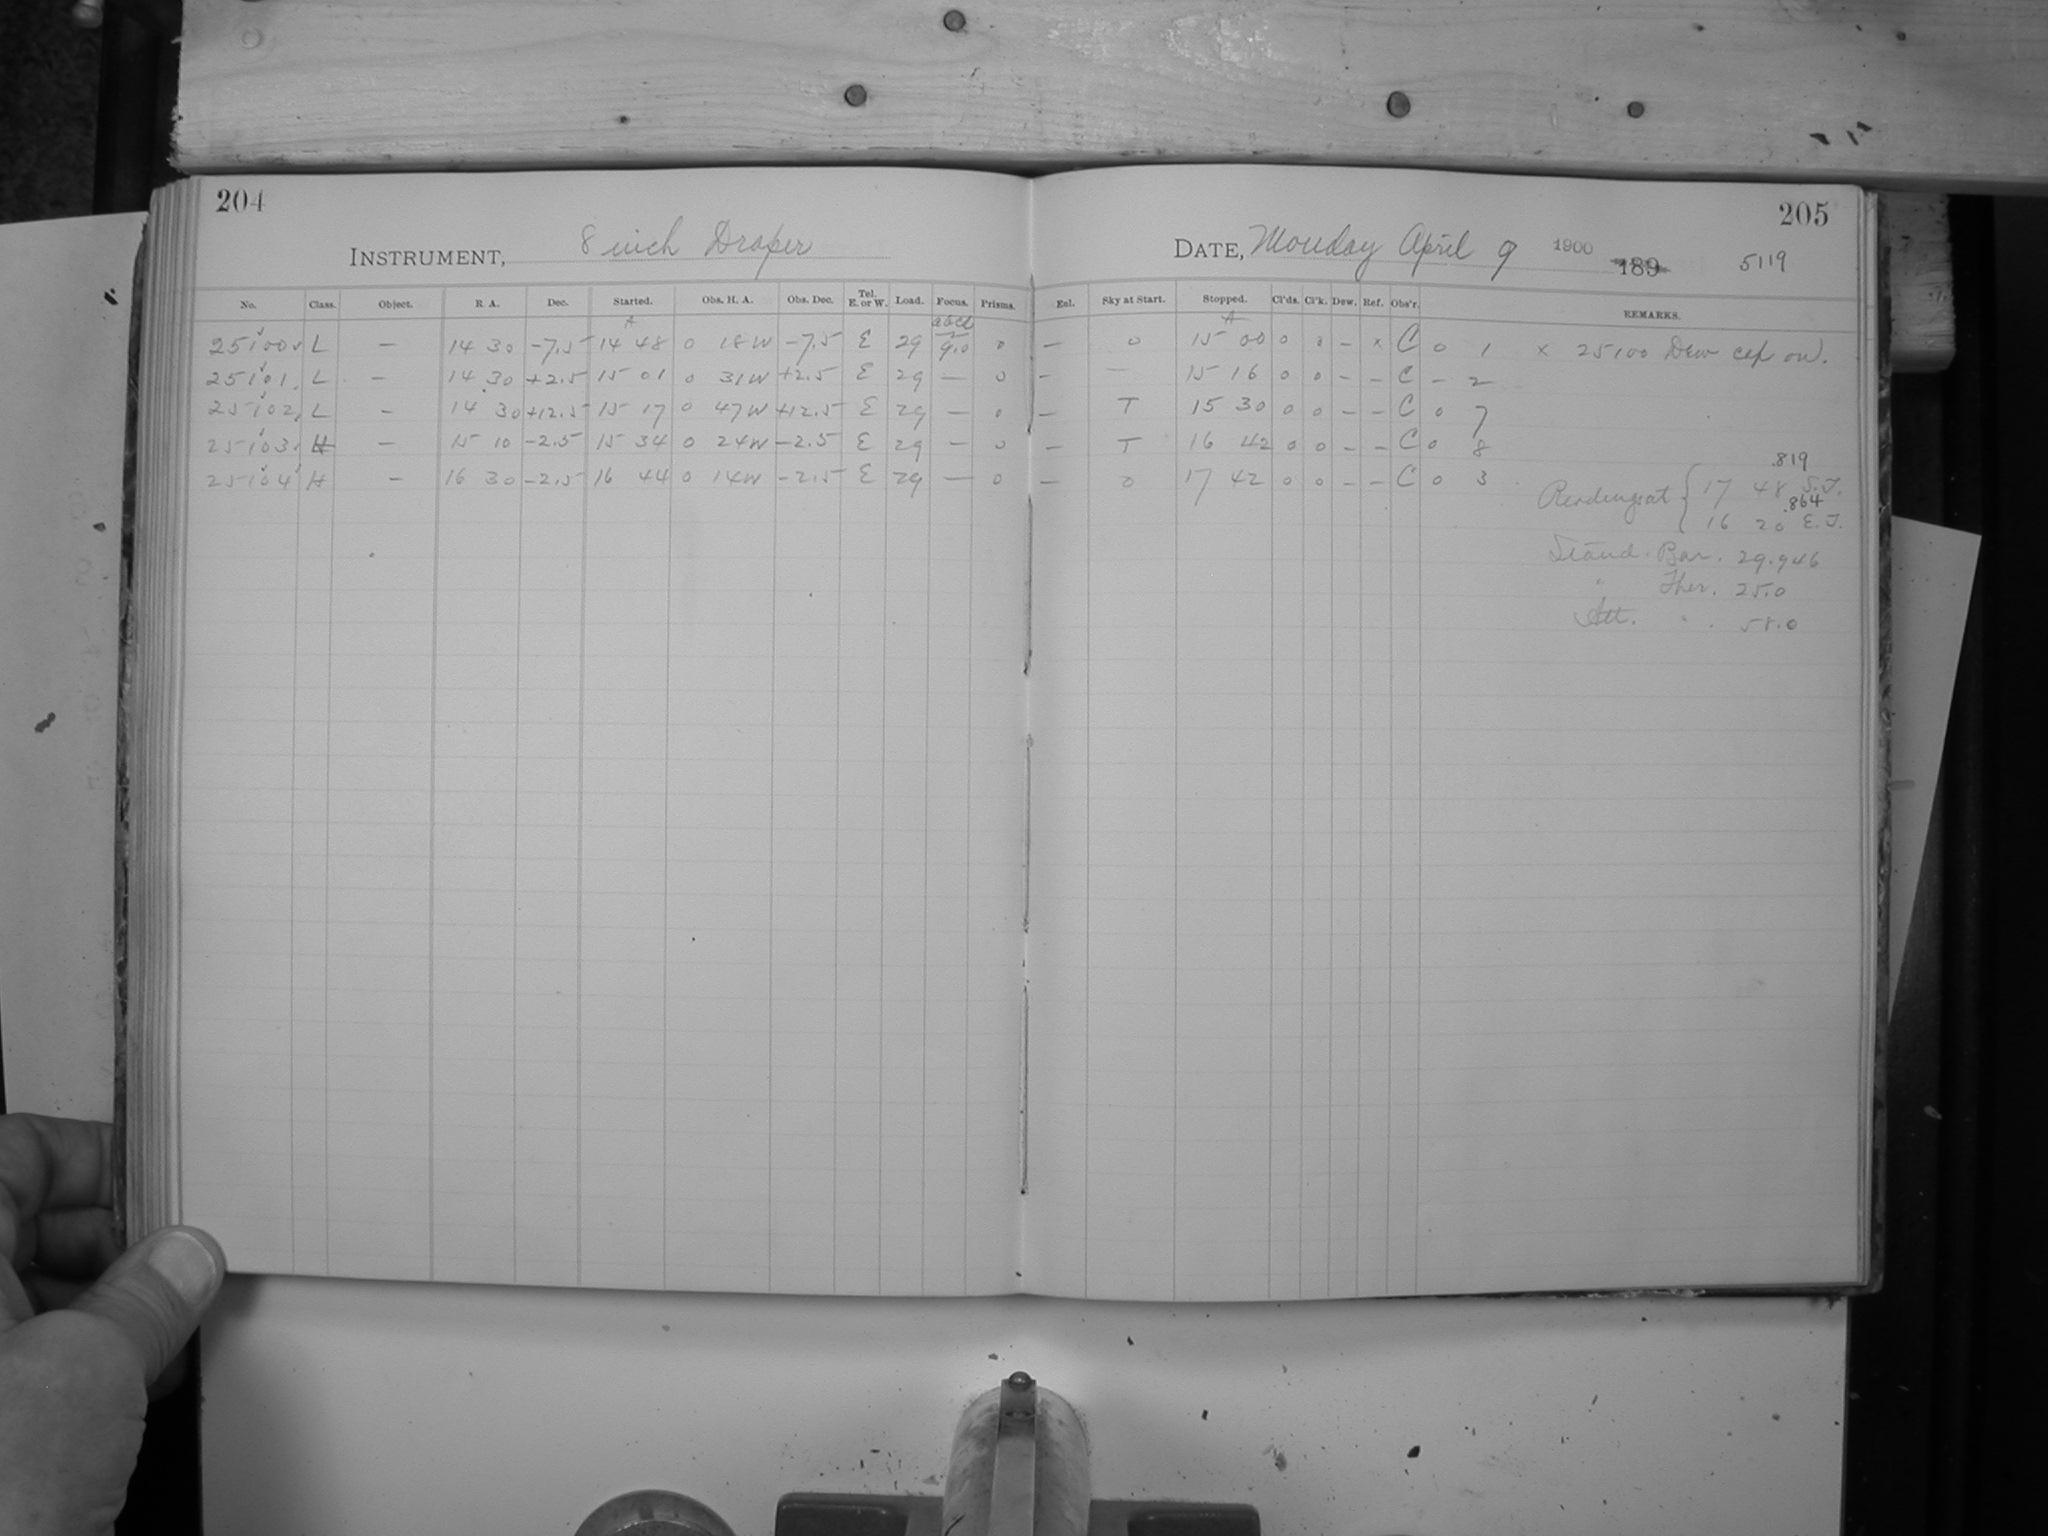 204
205
INSTRUMENT, 8 inch Draper
DATE, Monday April 9 1900 189 5119
No. Class. Object. R. A. Dec. Started. Obs. H. A. Obs. Dec. Tel. E. or W. Load. Focus. Prisms. Enl. Sky at Start. Stopped. Cl'ds. Cl'k. Dew. Ref. Obs'r. REMARKS.
A abcd A
25100 L — 14 30 -7.5 14 48 0 18 W -7.5 E 29 9.0 0 — 0 15 00 0 0 – x C 0 1 x 25100 Dew cap on.
25101 L — 14 30 +2.5 15 01 0 31 W +2.5 E 29 — 0 — — 15 16 0 0 – – C – 2
25102 L — 14 30 +12.5 15 17 0 47 W +12.5 E 29 — 0 — T 15 30 0 0 – – C 0 7
25103 H — 15 10 -2.5 15 34 0 24 W -2.5 E 29 — 0 — T 16 42 0 0 – – C 0 8
25104 H — 16 30 -2.5 16 44 0 14 W -2.5 E 29 — 0 — 0 17 42 0 0 – – C 0 3
.819
Readings at { 17 48 S.T.
.864
16 20 E.T.
Stand. Bar. 29.946
" Ther. 25.0
Att. " . 58.0